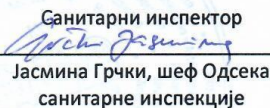 Санитарни инспектор
Јасмина Грчки, шеф Одсека
санитарне инспекције